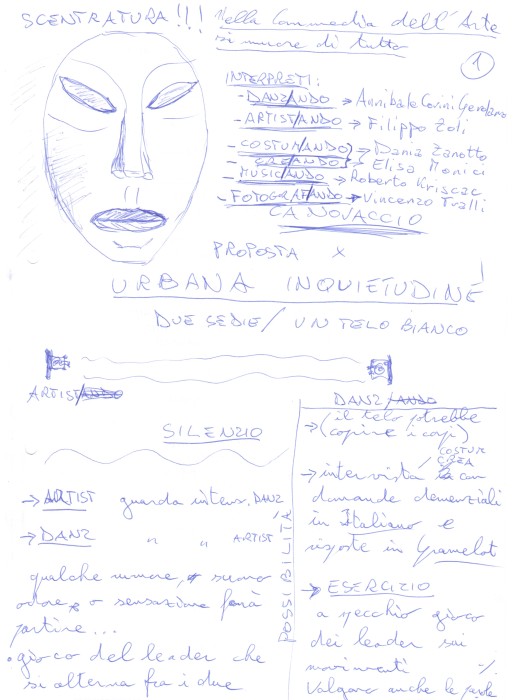 SCENTRATURA!!! Nella Commedia dell'Arte
si muore di tutto
1
INTERPRETI:
- DANZ/ANDO → Annibale
- ARTIST/ANDO → Filippo Zoli
- COSTUM/ANDO } → Dania Zanotto
- CREANDO } → Elisa Monici
- MUSIC/ANDO → Roberto Kriscac
- FOTOGRAF/ANDO → Vincenzo Tralli
CANOVACCIO
PROPOSTA X
URBANA INQUIETUDINE
DUE SEDIE/ UN TELO BIANCO
ARTIST/ANDO
DANZ/ANDO
SILENZIO
→ ARTIST guarda intens. DANZ
→ DANZ " " ARTIST
qualche rumore, suono
odore, o sensazione farà
partire...
• gioco del leader che
si alterna fra i due
POSSIBILITÀ
→ (il telo potrebbe
coprire i corpi)
COSTUM
/ CREA
→ intervista con
domande demenziali
in Italiano e
risposte in Gramelot
→ ESERCIZIO
a specchio gioco
dei leader sui
movimenti -/
Valgono anche le parole